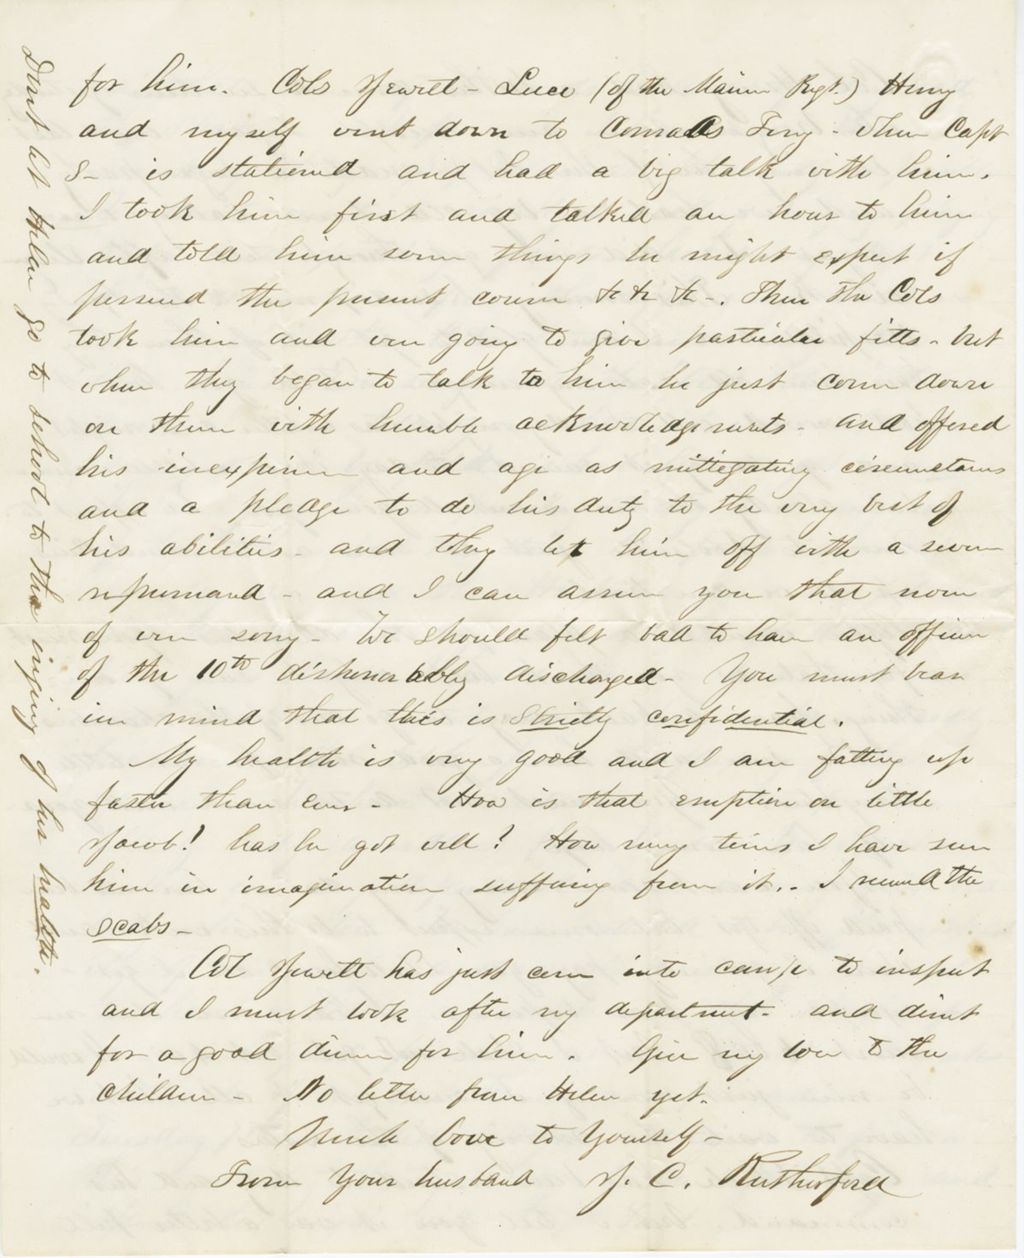 for him. Cols Jewett - Luce (of the Maine Regt.) Henry
and myself went down to Conrads Ferry - where Capt
S- is stationed and had a big talk with him.
I took him first and talked an hour to him
and told him some things he might expect if
persued the present course &c &c &c -. Then the Cols
took him and were going to give particular fitts - but
when they began to talk to him he just come down
on them with humble acknowledgements - and offered
his inexperience and age as mittegating circumstances
and a pledge to do his duty to the very best of
his abilities - and they let him off with a severe
reprimand - and I can assure you that none
of were sorry - We should felt bad to have an officer
of the 10th dishonorably discharged - You must bear
in mind that this is strictly confidential.
My health is very good and I am fatting up
faster than ever - How is that eruption on little
Jacob! has he got well? How many times I have seen
him in imagination suffering from it.. I received the
scabs -
Col Jewett has just come into camp to inspect
and I must look after my department - and direct
for a good dinner for him. Give my love to the
children - No letter from Helen yet.
Much love to yourself -
From your husband J. C. Rutherford
Dont let Helen go to school to the injury of her health.